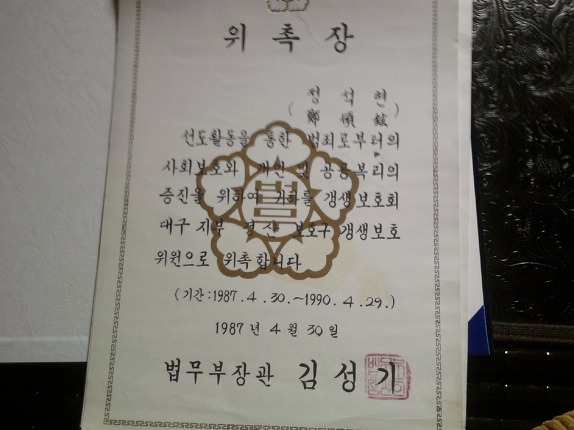 위촉장
정석현
(鄭碩鉉)
선도활동을 통한 범죄로부터의
사회보호와 개선 및 공공복리의
증진을 위하여 귀하를 갱생보호회
대구지부 경산 보호구 갱생보호
위원으로 위촉합니다
(기간:1987.4.30.~1990.4.29.)
1987년 4월 30일
법무부장관 김성기